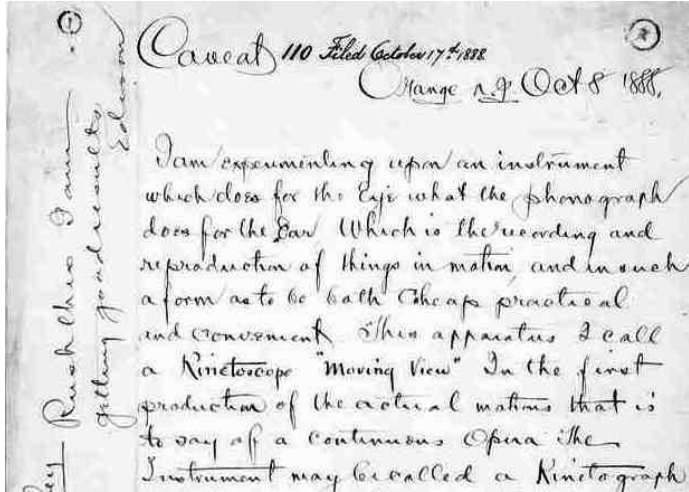 Caveat 110 Filed October 17th 1888
Orange N.J. Oct 8 1888.
I am experimenting upon an instrument
which does for the Eye what the phonograph
does for the Ear, Which is the recording and
reproduction of things in motion, and in such
a form as to be both Cheap practical
and convenient. This apparatus I call
a Kinetoscope "Moving View" In the first
production of the actual motions that is
to say of a continuous Opera The
Instrument may be called a Kinetograph
Rush this I am
getting good results
Edison